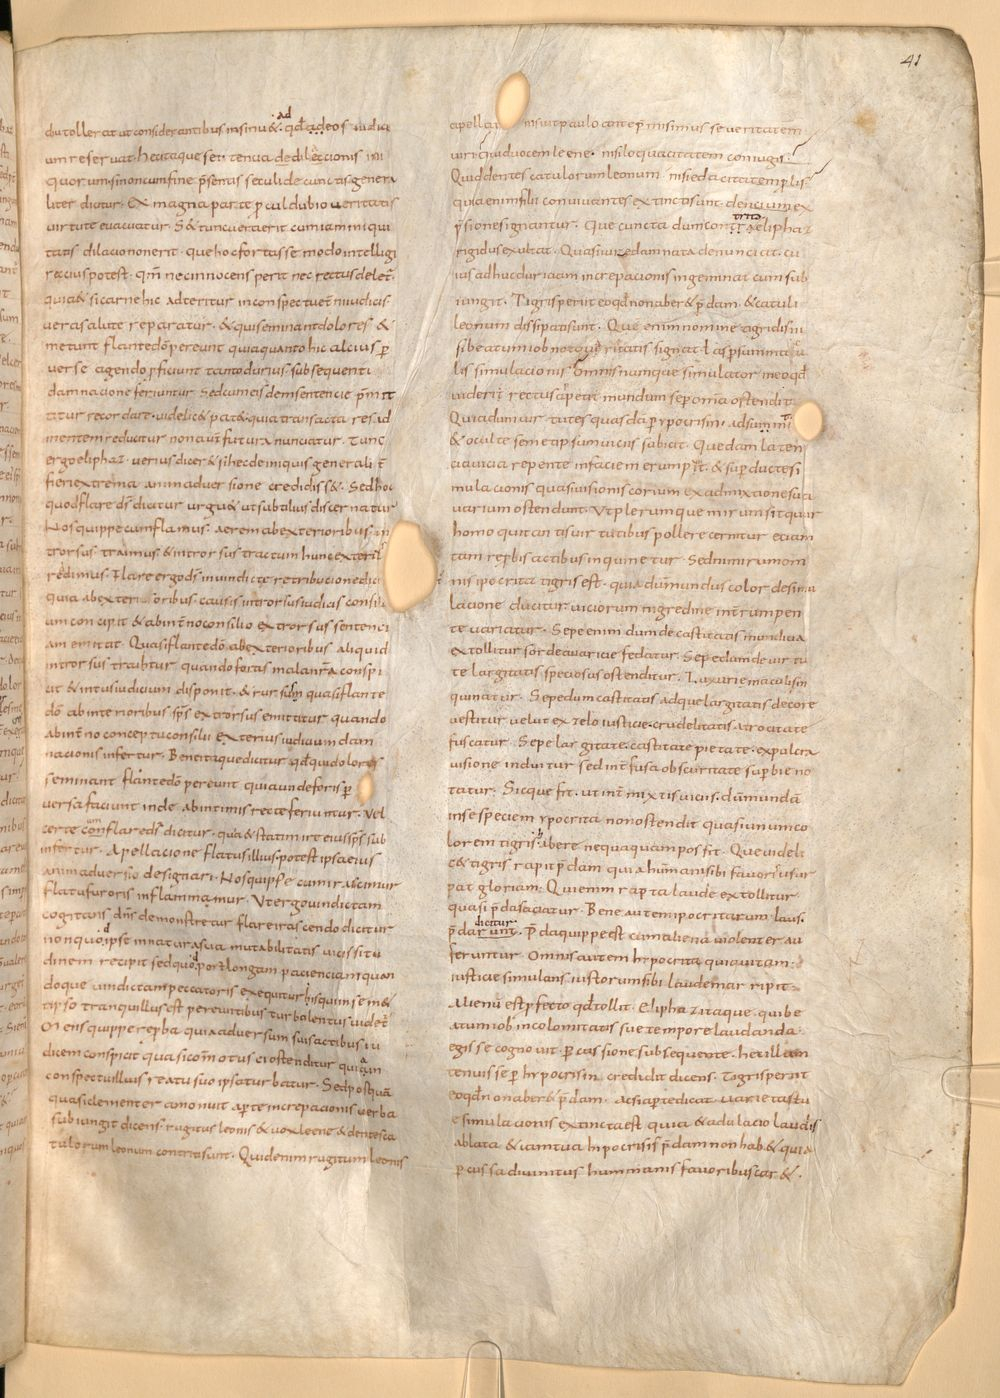 41
diu tollerat ut considerantibus insinu&. qđ ad eos iudici
um reseruat. hec itaque seti tenua de dileccionis ini
quorum. sinon cum fine p̄sentis seculi de cunctis genera
liter dicitur. Ex magna parte p culdubio ueritatis
uirtute euacuatur. S& tunc uerterit cum iam iniqui
tatis dilacio non erit. que hoc fortasse modo intelligi
rectius potest. qm̄ nec innocens perit nec rectus delet̄.
quia & si carne hic adteritur in conspectu &erni iudicis
uera salute reparatur. & qui seminant dolores &
metunt flante dō pereunt quia quanto hic alcius p
uerse agendo pficiunt tanto durius subsequenti
damnacione feriuntur. Sed cum eis dem sentencie p̄mit
titur recordare. uidelic& pat& quia transacta res ad
mentem reducitur non aut̄ futura nunciatur. Tunc
ergo eliphaz. uerius dicer& si hec de iniquis generalit̄
fieri extrema animaduersione credidiss&. Sed hoc
quod flare dš dicitur urgu& ut subtilius discernatur
Nos quippe cum flamus. aerem ab exterioribus in
trorsus traimus. & introrsus tractum hunc exterius
reddimus. Flare ergo dš in uindicte retribucione dici
quia ab exterioribus causis introrsus iudicii consili
um concipit & ab int̄no consilio extrorsus sentenci
am emittat. Quasi flante dō ab exterioribus aliquid
introrsus traitur quando foras mala nr̄a conspi
cit & intus iudicium disponit. & rursum quasi flante
dō ab interioribus sp̄s extrorsus emittitur quando
ab int̄no conceptu consilii exterius iudicium dam
nacionis infertur. Bene itaque dicitur qđ qui dolores
seminant flante dō pereunt quia unde foris p
uersa faciunt inde ab intimis recte feriuntur. Vel
certe cum flare dš dicitur. quia & statim ire eius sp̄s sub
infertur. Apellacione flatus illius. potest ipsa eius
animaduersio designari. Nos quippe cum irascimur
flatu furoris inflammamur. Vt ergo uindictam
cogitans dn̄s demonstretur flare irascendo dicitur
non quod ipse in natura sua mutabilitatis uicissitu
dinem recipit sed quod post longam pacienciam quan
doque uindictam peccatoris exequitur. hisquin se m&
tipso tranquillus est pereuntibus turbolentus uidet̄
Mens quippe repba quia aduersum suis actibus iu
dicem conspicit quasi com̄otus ei ostenditur quia in
conspectu illius reatu suo ipsa turbatur. Sed postquā
quasi clementer anonuit apte increpacionis uerba
subiungit dicens. rugitus leonis & uox leene & dentes ca
tulorum leonum contriti sunt. Quid enim rugitum leonis
apellat nisi ut paulo ante p̄misimus seueritatem
uiri quid uocem leene. nisi loquacitatem coniugis.
Quid dentes catulorum leonum nisi edacitatem plis
quia enim filii conuiuantes extincti sunt. dencium ex
p̄sione signantur. Que cuncta dum contrita eliphaz
rigidus exultat. Quasi iure damnata denunciat. cu
ius adhuc duriciam increpacionis ingeminat cum sub
iungit. Tigris periit eo qđ non aber& p̄dam. & catuli
leonum dissipati sunt. Que enim nomine tigridis nisi
beatum iob nota ueritatis signat. l aspersum macu
lis simulacionis. Omnis namque simulator in eo qđ
uideri rectus apetit mundum se p omīa ostendit
Quia dum uirtutes quasdā p ypocrisin adsumit
& oculte semetipsum uiciis subicit. Quedam laten
cia uicia repente in faciem erumpt̄. & sup ducte si
mulacionis quasi uisionis corium ex admixtione sui
uarium ostendunt. Vt plerumque mirum sit cur
homo qui tantis uirtutibus pollere cernitur eciam
tam repbis actibus inquinetur. Sed nimirum om
nis ipocrita tigris est. quia dū mundus color de simu
lacione ducitur uiciorum nigredine int̄rumpen
te uariatur. Sepe enim dum de castitatis mundicia
extollitur sorde auaricie fedatur. Sepe dum de uirtu
te largitatis speciosus ostenditur. Luxurie maculis in
quinatur. Sepe dum castitatis adque largitatis decore
uestitur uelut ex zelo iusticie. crudelitatis atrocitate
fuscatur. Sepe largitate. castitate pietate. ex pulcra
uisione induitur sed int̄fusa obscuritate supbie no
tatur. Sicque fit. ut int̄ mixtis uiciis. dū mundā
in se speciem ypocrita non ostendit quasi unum co
lorem tigris ibere nequaquam possit. Que uideli
c& tigris rapit p̄dam quia humani sibi fauoris usur
pat gloriam. Qui enim rapta laude extollitur.
quasi p̄da saciatur. Bene autem ipocritarum laus
p̄da dicitur. P̄da quippe est cum aliena uiolenter au
feruntur. Omnis autem hypocrita qui quitam
iusticie simulans. iustorum sibi laudem arripit.
Alienū est pfecto qđ tollit. Eliphaz itaque. quia be
atum iob incolomitatis sue tempore laudanda
egisse cognouit. p cussione subsequente. hec illum
tenuisse p hypocrisin credidit dicens. Tigris periit
eo qđ non aber& p̄dam. Ac si apte dicat. uarietas tu
e simulacionis extincta est quia & adulacio laudis
ablata & iam tua hipocrisis p̄dam non hab& quia
p cussa diuinitus humanis fauoribus car&.